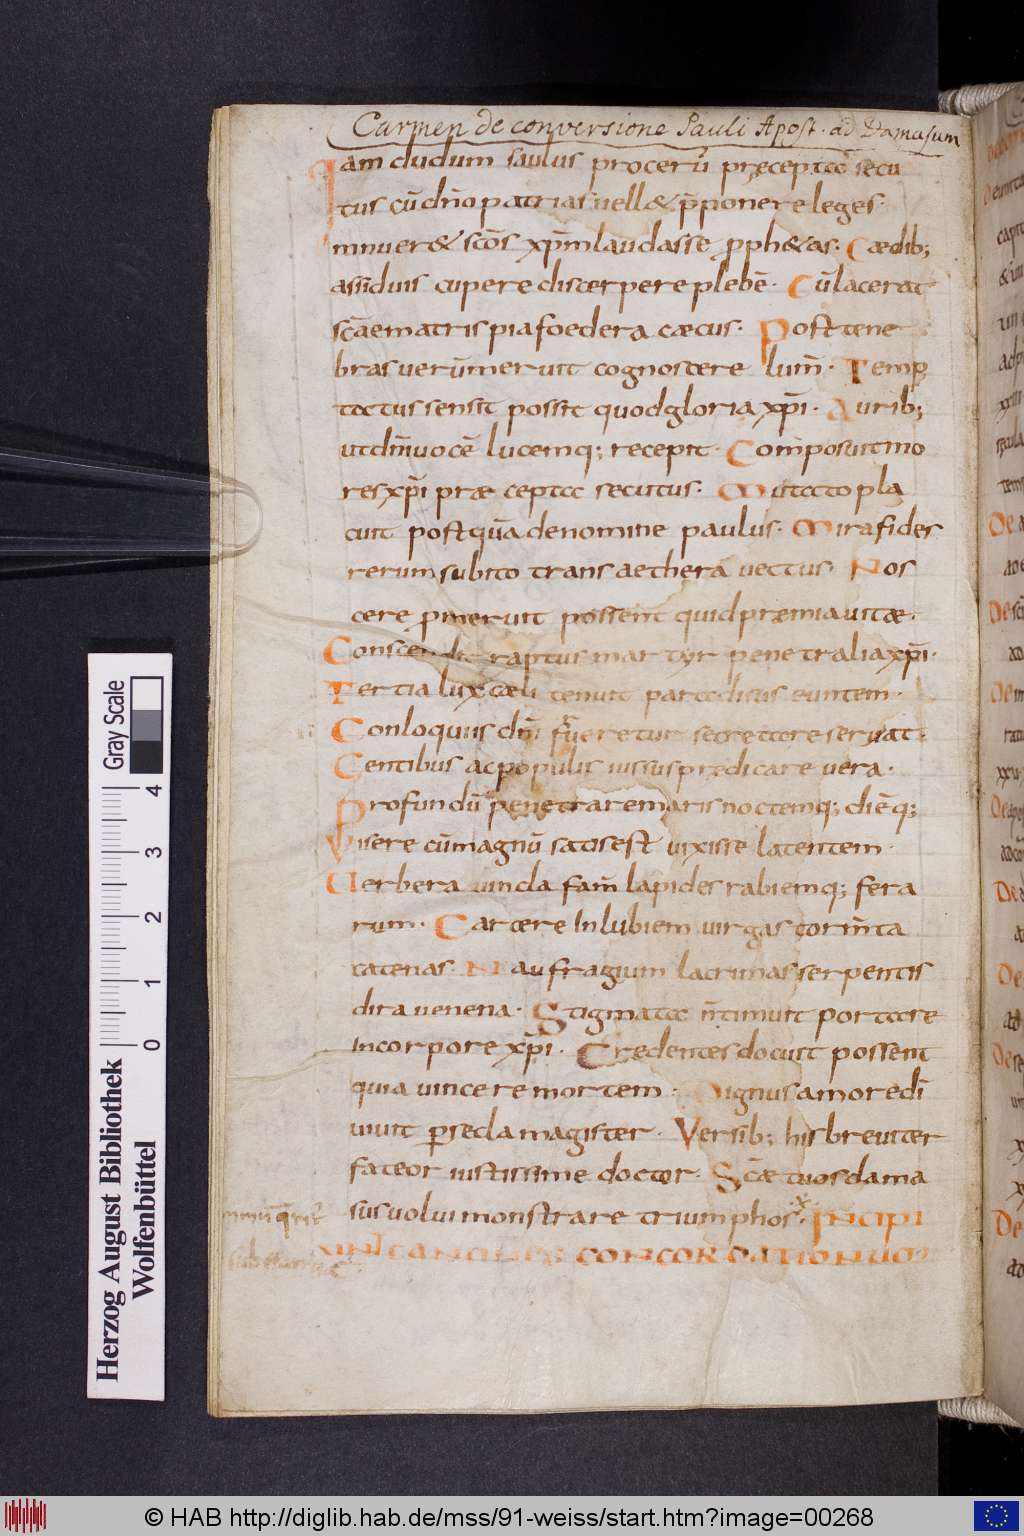 Carmen de conversione Pauli Apost. ad Damasum
Iam dudum saulus procerū pręcepta secu
tus cū dn̄o patrias uell& p̄ponere leges·
mnuer& scōs xp̄m laudasse pph&as· Cædib;
assiduis cupere discerpere plebē· Cū lacerat
scāe matris pia foedera cæcus· Post tene
bras uerū meruit cognoscere lum̄· Temp
tatus sensit possit quod gloria xp̄i· Aurib;
ut dn̄i uocē lucemq; recepit· Composuit mo
res xp̄i præcepta secutus· Mutato pla
cuit postquā de nomine paulus· Mira fides
rerum subito trans aethera uectus· Nos
cere pmeruit possent quid præmia uitæ·
Conscendit raptus martyr penetralia xp̄i·
Tertia lux cæli tenuit paradisus euntem·
Conloquiis dn̄i frueretur secreta reseruat·
Gentibus ac populis iussus prædicare uera·
Profundū penetrare maris noctemq; diēq;
Visere cū magnū satis est uixisse latentem·
Uerbera uincla fam̄ lapides rabiemq; fera
rum· Carcere Inlubiem uirgas torm̄ta
catenas· Naufragium lacrimas serpentis
dira uenena· Stigmata n̄ timuit portare
In corpore xp̄i· Credentes docuit possent
qui a uincere mortem· Dignus amore dī
uiuit p secla magister· Versib; his breuiter
fateor iustissime doctor· Scāe tuos dama
sus uolui monstrare triumphos· Incipi
CANONES CONCORDATIONU
Herzog August Bibliothek
Wolfenbüttel
Gray Scale
0 1 2 3 4
© HAB http://diglib.hab.de/mss/91-weiss/start.htm?image=00268